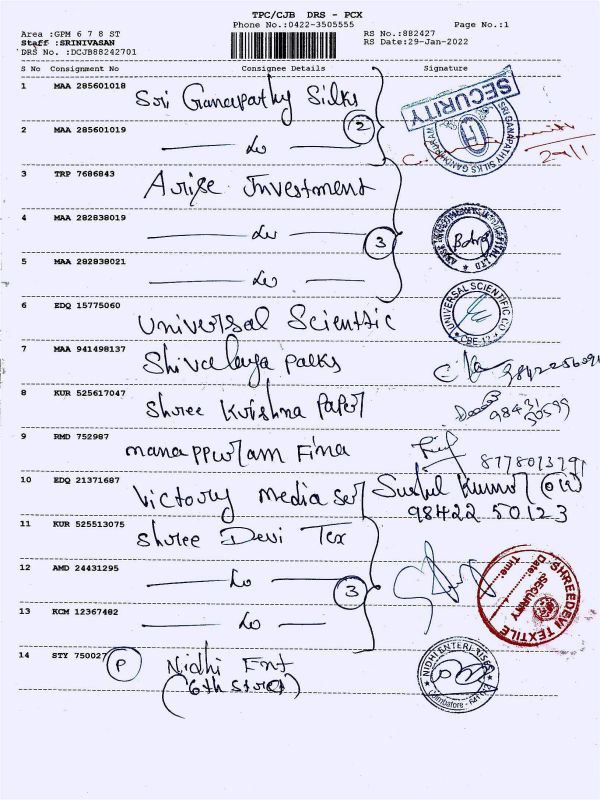 TPC/CJB DRS - PCX
Phone No.:0422-3505555
Page No.:1
Area :GPM 6 7 8 ST
Staff :SRINIVASAN
DRS No. :DCJB88242701
RS No.:882427
RS Date:29-Jan-2022
S No Consignment No Consignee Details Signature
1 MAA 285601018 Sri Ganapathy Silks
2
SECURITY
SRI GANAPATHY SILKS GANDHIPURAM
29/1
2 MAA 285601019
3 TRP 7686843 Arise Investment
4 MAA 282838019
3
5 MAA 282838021
6 EDQ 15775060 Universal Scientific
UNIVERSAL SCIENTIFIC CO
CBE-12
7 MAA 941498137 Shivalaya Parks
8 KUR 525617047 Shree Krishna Paper
98431
50599
9 RMD 752987 manappuram Fina
8778013791
10 EDQ 21371687 Victory media ser Sushil Kumar
98422 50123
11 KUR 525513075 Shree Devi Tex
12 AMD 24431295
3
SHREEDEVI TEXTILE
SECURITY
Date:
Time:
13 KCM 12367482
14 STY 750027 P Nidhi Ent
(6th Street)
NIDHI ENTERPRISES
Coimbatore